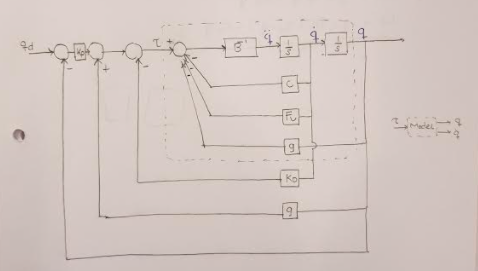 qd
Kp
τ
+
-
-
+
-
-
-
-
B⁻¹
q̈
1/s
q̇
1/s
q
C
Fv
g
KD
g
τ
Model
q
q̇